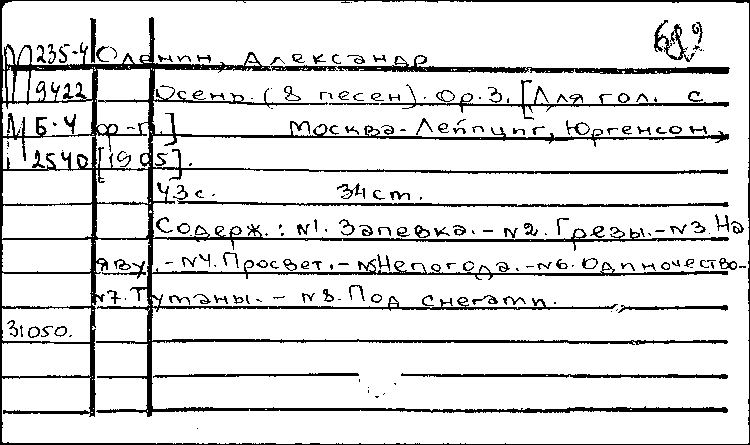 682
М 235-4 Оленин, Александр
9422 Осень. (8 песен). Op. 3. [Для гол. с
М Б-4 ф-п.] Москва-Лейпциг, Юргенсон,
2540 [1905].
43 с. 34 ст.
Содерж.: №1. Запевка. - №2. Грезы. - №3. На
яву. - №4. Просвет. - №5 Непогода. - №6. Одиночество. -
№7. Туманы. - №8. Под снегами.
31050.